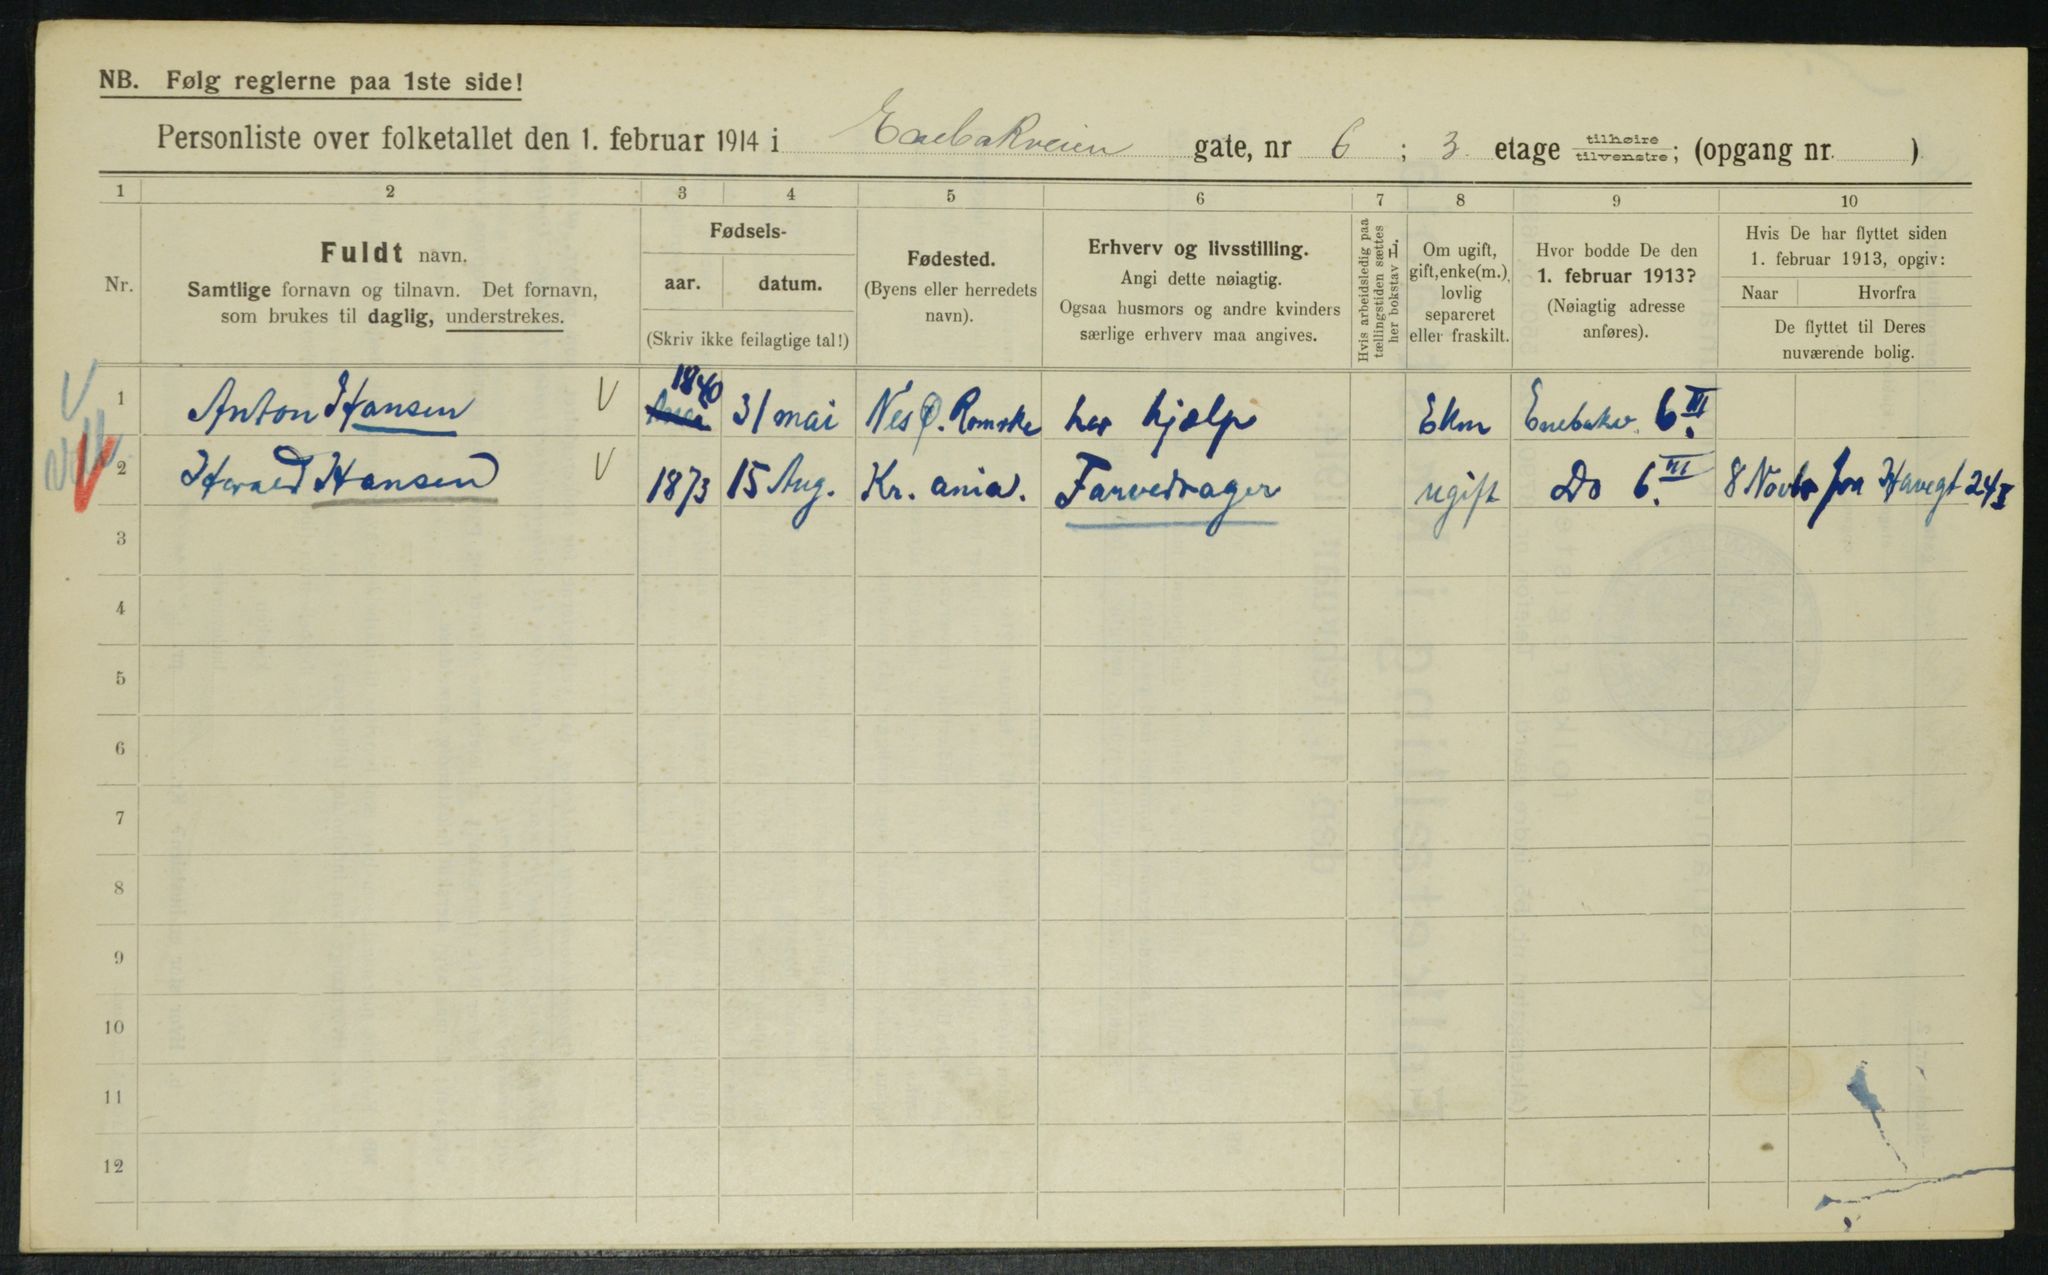 NB. Følg reglerne paa 1ste side!
Personliste over folketallet den 1. februar 1914 i Enebakveien gate, nr 6; 3. etage tilhøire tilvenstre; (opgang nr. )
1 2 3 4 5 6 7 8 9 10
Nr.
Fuldt navn.
Samtlige fornavn og tilnavn. Det fornavn,
som brukes til daglig, understrekes.
Fødsels-
aar. datum.
(Skriv ikke feilagtige tal!)
Fødested.
(Byens eller herredets
navn).
Erhverv og livsstilling.
Angi dette nøiagtig.
Ogsaa husmors og andre kvinders
særlige erhverv maa angives.
Hvis arbeidsledig paa
tællingstiden sættes
her bokstav L.
Om ugift,
gift, enke(m.),
lovlig
separeret
eller fraskilt.
Hvor bodde De den
1. februar 1913?
(Nøiagtig adresse
anføres).
Hvis De har flyttet siden
1. februar 1913, opgiv:
Naar Hvorfra
De flyttet til Deres
nuværende bolig.
1 Anton Hansen V 1840 31 mai Nes Ø. Romrke har hjælp Ekm Enebakv. 6. III
2 Harald Hansen V 1873 15 Aug. Kr. ania. Farvedrager ugift Do 6. III 8 Novbr fra Havegt 24 I
3
4
5
6
7
8
9
10
11
12